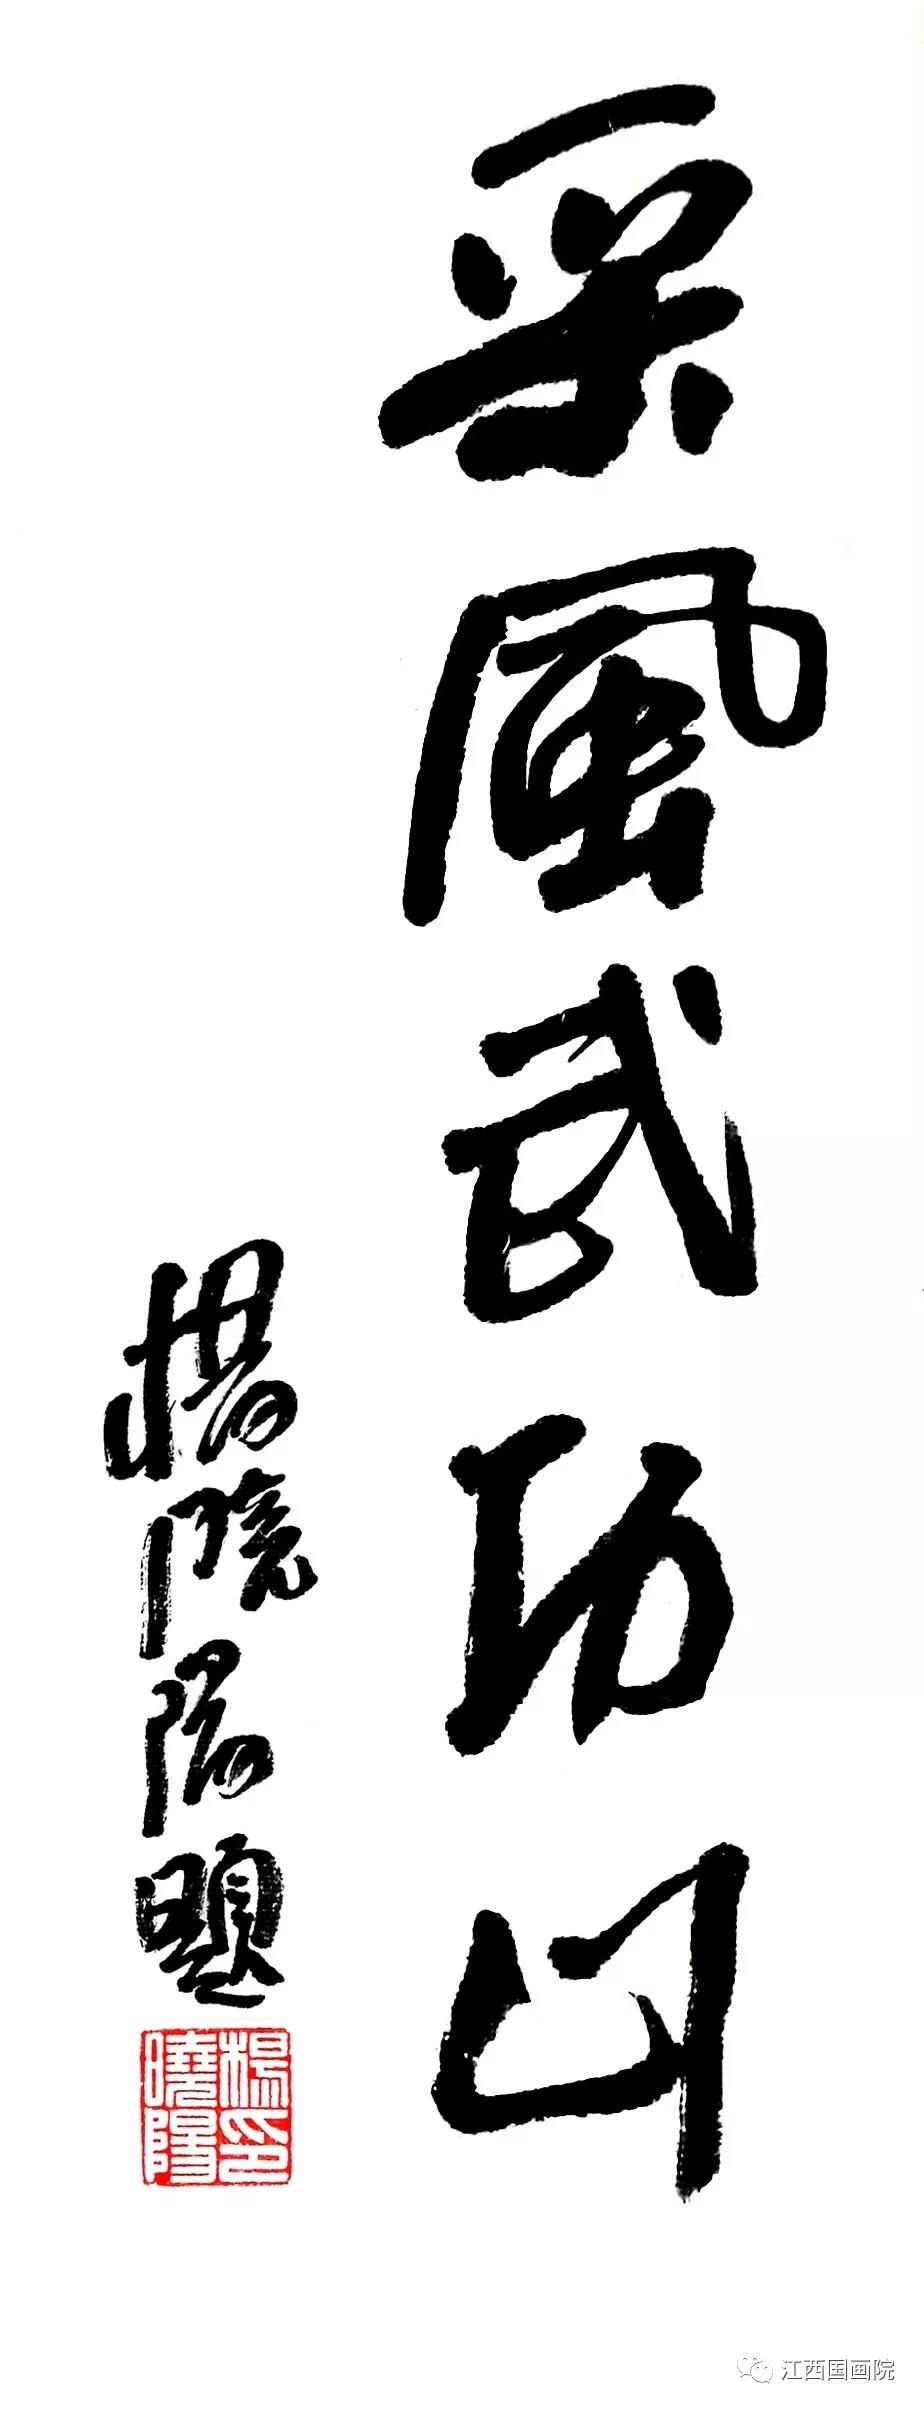 采風武功山
楊曉陽題
楊印
曉陽
江西国画院